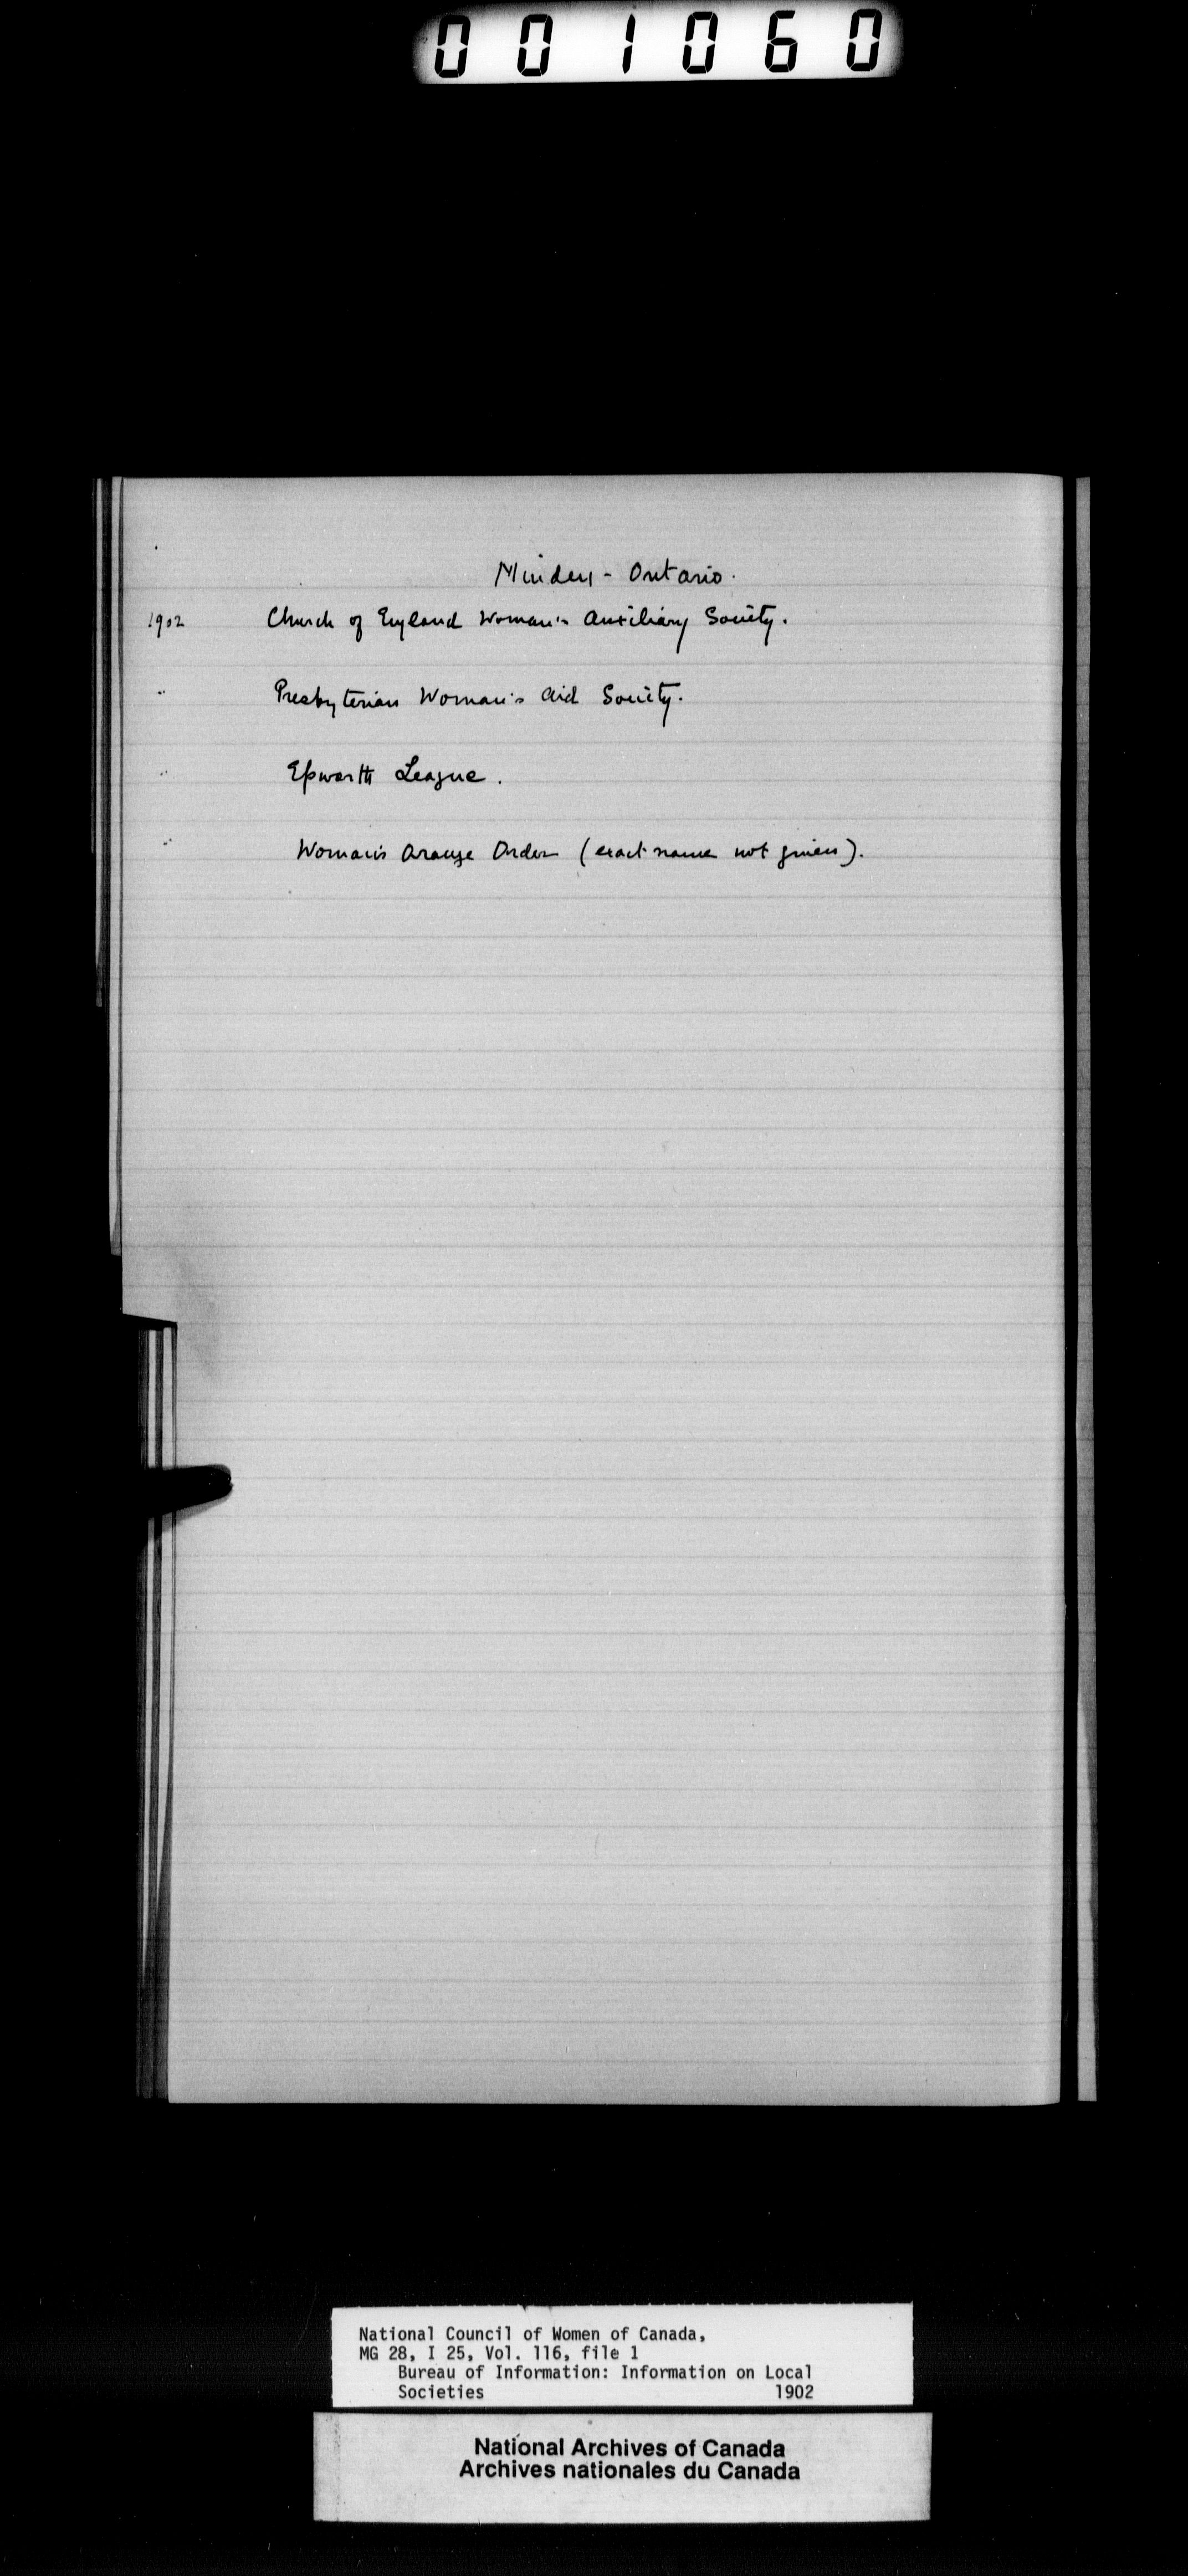 001060
Minden - Ontario.
1902 Church of England Woman's Auxiliary Society.
" Presbyterian Woman's Aid Society.
" Epworth League.
" Woman's Orange Order (exact name not given).
National Council of Women of Canada,
MG 28, I 25, Vol. 116, file 1
Bureau of Information: Information on Local
Societies 1902
National Archives of Canada
Archives nationales du Canada